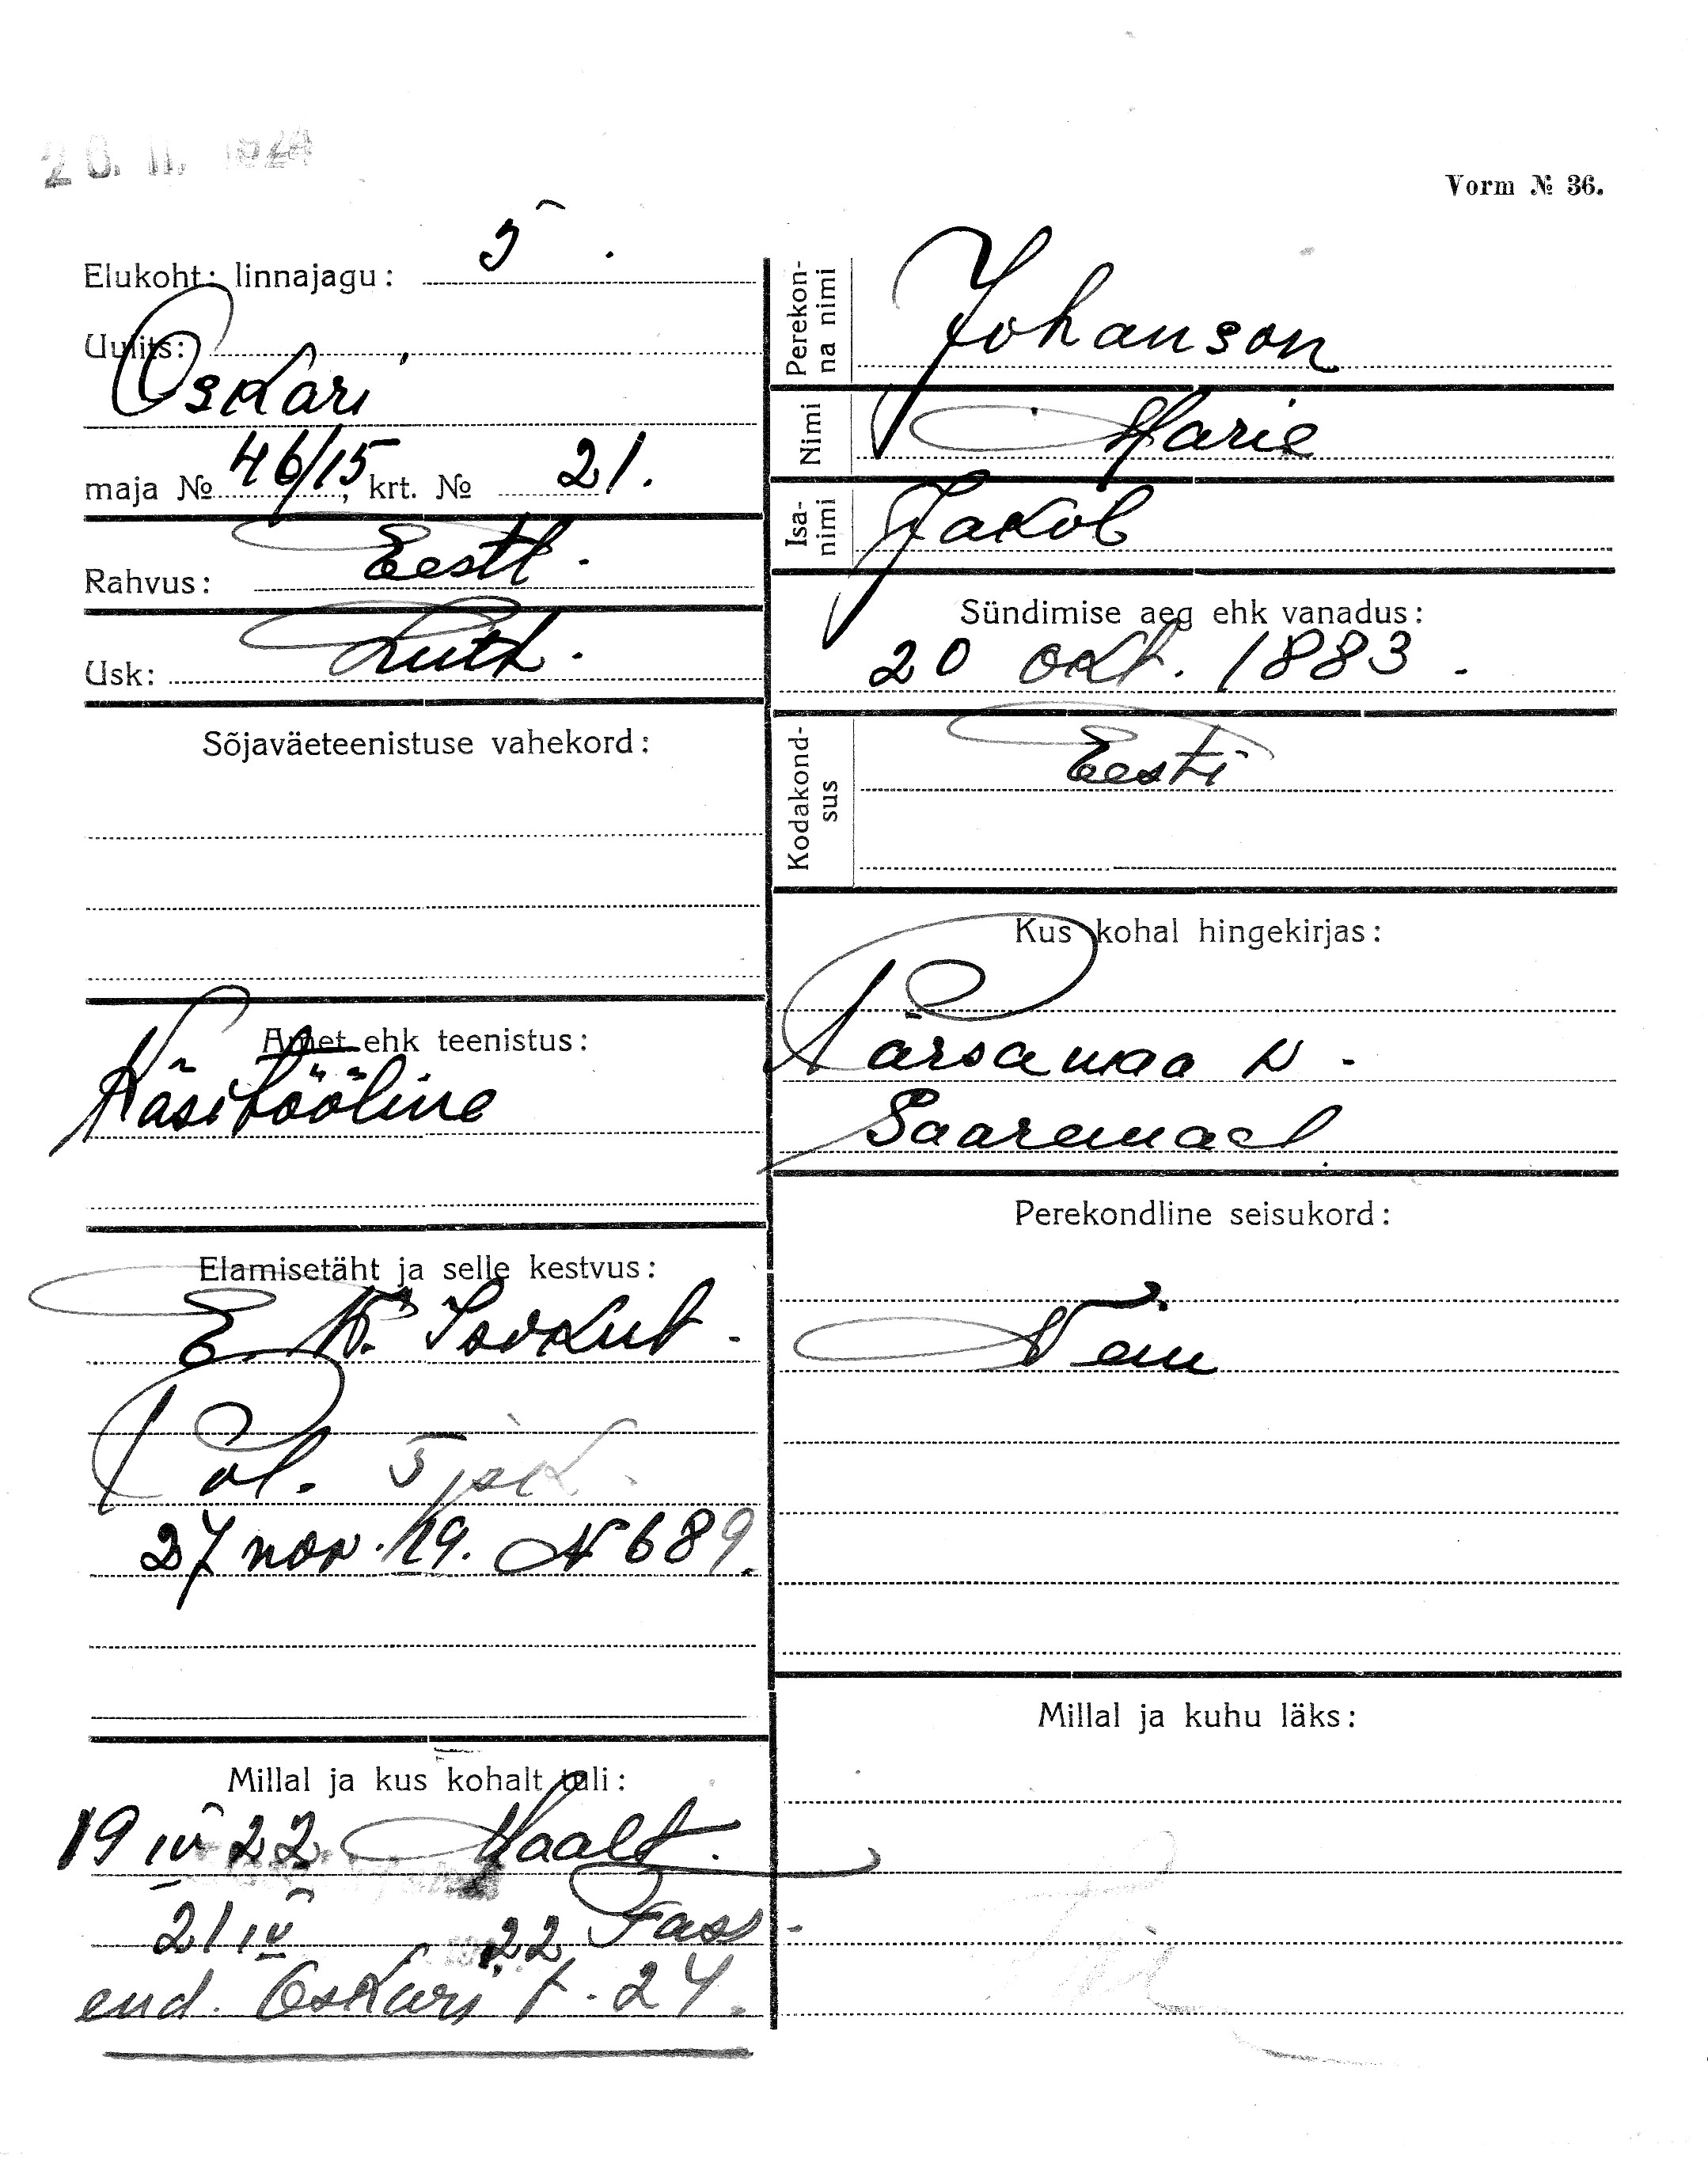 20. 11. 1924
Vorm № 36.
Elukoht: linnajagu: 5.
Uulits:
Oskari
maja № 46/15, krt. № 21.
Rahvus: Eestl.
Usk: Luth.
Sõjaväeteenistuse vahekord:
Amet ehk teenistus:
Käsitööline
Elamisetäht ja selle kestvus:
E. K. Isikut.
Pol. 5 jsk.
27 nov. 19. N 689.
Millal ja kus kohalt tuli:
19 IV 22 Maalt.
21 IV 22 Pass.
end. Oskari t. 24.
Perekonna nimi
Johanson
Nimi
Marie
Isanimi
Jakob
Sündimise aeg ehk vanadus:
20 okt. 1883.
Kodakondsus
Eesti
Kus kohal hingekirjas:
Pärsamaa v.
Saaremaal.
Perekondline seisukord:
Millal ja kuhu läks: